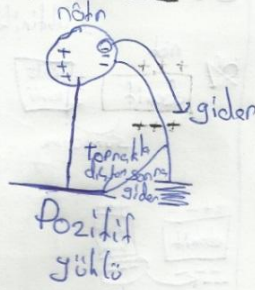 nötr
+ -
+ -
+
giden
+ + +
toprakla
sonra
giden
Pozitif
yüklü